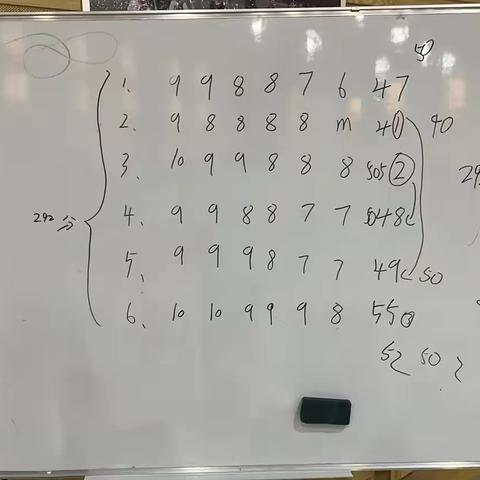 50
1. 9 9 8 8 7 6 47
2. 9 8 8 8 8 m 4① 40
3. 10 9 9 8 8 8 ②
292分
4. 9 9 8 8 7 7 48
5. 9 9 9 8 7 7 49 50
6. 10 10 9 9 9 8 55
52 50 2